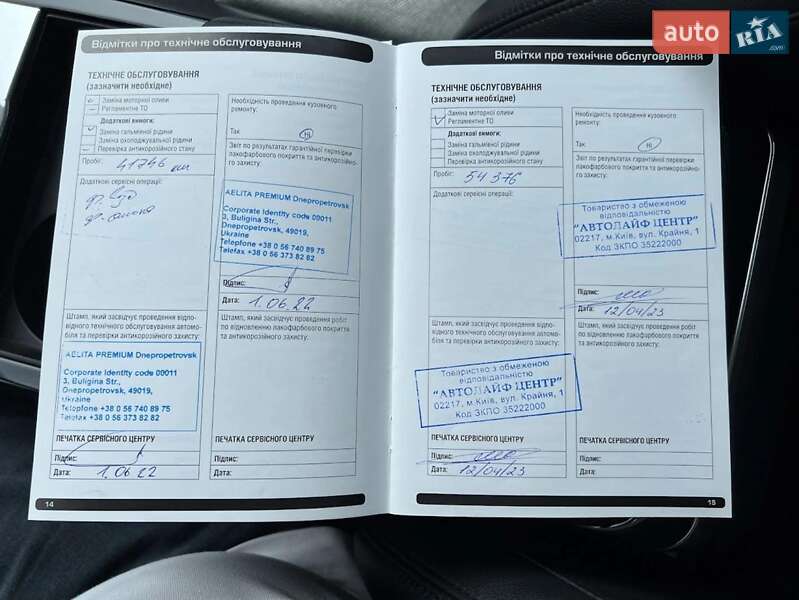 auto RIA .com
Відмітки про технічне обслуговування
ТЕХНІЧНЕ ОБСЛУГОВУВАННЯ
(зазначити необхідне)
Заміна моторної оливи
Регламентне ТО
Додаткові вимоги:
Заміна гальмівної рідини
Заміна охолоджувальної рідини
Перевірка антикорозійного стану
Пробіг: 41746 км
Додаткові сервісні операції:
Штамп, який засвідчує проведення відпо-
відного технічного обслуговування автомо-
біля та перевірки антикорозійного захисту:
AELITA PREMIUM Dnepropetrovsk
Corporate Identity code 00011
3, Buligina Str.,
Dnepropetrovsk, 49019,
Ukraine
Telophone +38 0 56 740 89 75
Telefax +38 0 56 373 82 82
ПЕЧАТКА СЕРВІСНОГО ЦЕНТРУ
Підпис:
Дата: 1.06.22
14
Необхідність проведення кузовного
ремонту:
Так Ні
Звіт по результатах гарантійної перевірки
лакофарбового покриття та антикорозійного
захисту:
AELITA PREMIUM Dnepropetrovsk
Corporate Identity code 00011
3, Buligina Str.,
Dnepropetrovsk, 49019,
Ukraine
Telephone +38 0 56 740 89 75
Telefax +38 0 56 373 82 82
Підпис:
Дата: 1.06.22
Штамп, який засвідчує проведення робіт
по відновленню лакофарбового покриття
та антикорозійного захисту:
ПЕЧАТКА СЕРВІСНОГО ЦЕНТРУ
Підпис:
Дата:
Відмітки про технічне обслуговування
ТЕХНІЧНЕ ОБСЛУГОВУВАННЯ
(зазначити необхідне)
Заміна моторної оливи
Регламентне ТО
Додаткові вимоги:
Заміна гальмівної рідини
Заміна охолоджувальної рідини
Перевірка антикорозійного стану
Пробіг: 54 376
Додаткові сервісні операції:
Штамп, який засвідчує проведення відпо-
відного технічного обслуговування автомо-
біля та перевірки антикорозійного захисту:
Товариство з обмеженою
відповідальністю
"АВТОЛАЙФ ЦЕНТР"
02217, м.Київ, вул. Крайня, 1
Код ЗКПО 35222000
ПЕЧАТКА СЕРВІСНОГО ЦЕНТРУ
Підпис:
Дата: 12/04/23
Необхідність проведення кузовного
ремонту:
Так Ні
Звіт по результатах гарантійної перевірки
лакофарбового покриття та антикорозійного
захисту:
Товариство з обмеженою
відповідальністю
"АВТОЛАЙФ ЦЕНТР"
02217, м.Київ, вул. Крайня, 1
Код ЗКПО 35222000
Підпис:
Дата: 12/04/23
Штамп, який засвідчує проведення робіт
по відновленню лакофарбового покриття
та антикорозійного захисту:
ПЕЧАТКА СЕРВІСНОГО ЦЕНТРУ
Підпис:
Дата:
15